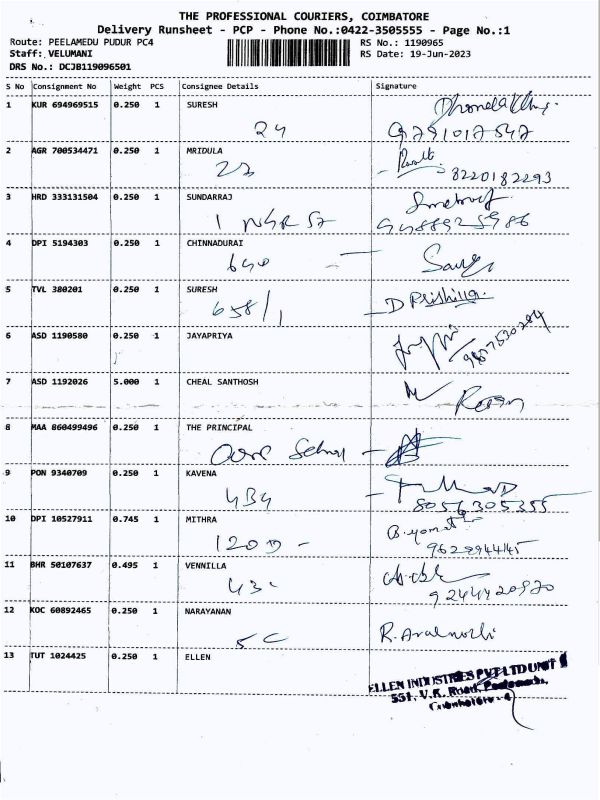 THE PROFESSIONAL COURIERS, COIMBATORE
Delivery Runsheet - PCP - Phone No.:0422-3505555 - Page No.:1
Route: PEELAMEDU PUDUR PC4 RS No.: 1190965
Staff: VELUMANI RS Date: 19-Jun-2023
DRS No.: DCJB119096501
S No Consignment No Weight PCS Consignee Details Signature
1 KUR 694969515 0.250 1 SURESH
24 9791017547
2 AGR 700534471 0.250 1 MRIDULA
23 8220182293
3 HRD 333131504 0.250 1 SUNDARRAJ
1 NGR ST
4 DPI 5194303 0.250 1 CHINNADURAI
640
5 TVL 380201 0.250 1 SURESH
658/1 D Prishilla
6 ASD 1190580 0.250 1 JAYAPRIYA
7 ASD 1192026 5.000 1 CHEAL SANTHOSH
8 MAA 860499496 0.250 1 THE PRINCIPAL
9 PON 9340709 0.250 1 KAVENA
434 8056305355
10 DPI 10527911 0.745 1 MITHRA
11 BHR 50107637 0.495 1 VENNILLA
12 KOC 60892465 0.250 1 NARAYANAN
5C R. Aralmozhi
13 TUT 1024425 0.250 1 ELLEN
ELLEN INDUSTRIES PVT LTD UNIT
551, V.K. Road,